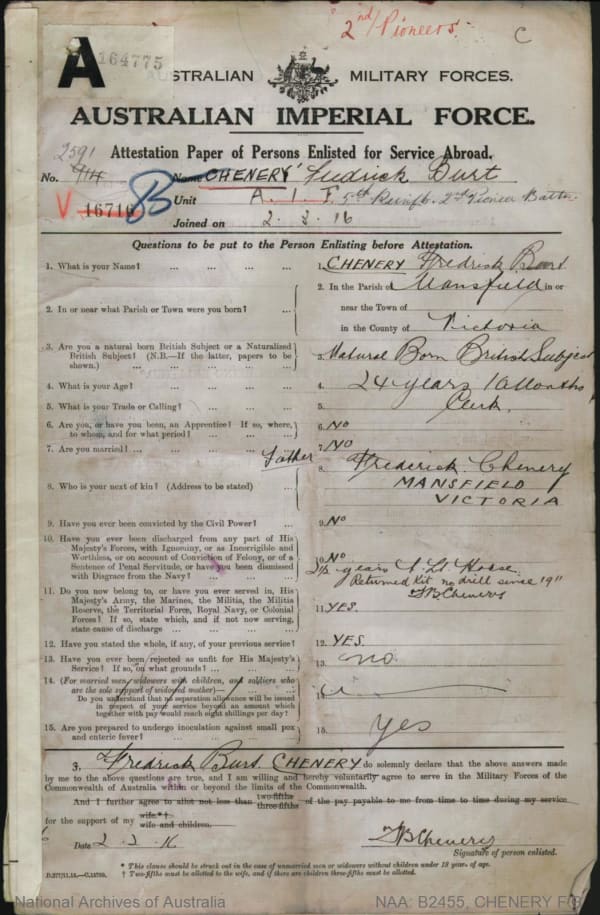 2nd/Pioneers.
C
A
164775
AUSTRALIAN MILITARY FORCES.
AUSTRALIAN IMPERIAL FORCE.
2591
Attestation Paper of Persons Enlisted for Service Abroad.
No. Name CHENERY Fredrick Burt
V 16716 B
Unit A. I. F. 5th Reinfts. 2nd Pioneer Battn.
Joined on 2. 3. 16
Questions to be put to the Person Enlisting before Attestation.
1. What is your Name? ... ... ... ... 1. CHENERY Fredrick Burt
2. In or near what Parish or Town were you born? ... 2. In the Parish of Mansfield in or
near the Town of
in the County of Victoria
3. Are you a natural born British Subject or a Naturalized
British Subject? (N.B.—If the latter, papers to be
shown.) ... ... ... ... 3. Natural Born British Subject
4. What is your Age? ... ... ... ... 4. 24 years 10 Months
5. What is your Trade or Calling? ... ... ... 5. Clerk.
6. Are you, or have you been, an Apprentice? If so, where,
to whom, and for what period? ... ... ... 6. NO
7. Are you married? ... ... ... ... 7. NO
8. Who is your next of kin? (Address to be stated) ... Father 8. Frederick Chenery
MANSFIELD
VICTORIA
9. Have you ever been convicted by the Civil Power? ... 9. No
10. Have you ever been discharged from any part of His
Majesty's Forces, with Ignominy, or as Incorrigible and
Worthless, or on account of Conviction of Felony, or of a
Sentence of Penal Servitude, or have you been dismissed
with Disgrace from the Navy? ... ... ... 10. No
2½ years A. Lt Horse.
Returned Kit no drill since 1911
FBChenery
11. Do you now belong to, or have you ever served in, His
Majesty's Army, the Marines, the Militia, the Militia
Reserve, the Territorial Force, Royal Navy, or Colonial
Forces? If so, state which, and if not now serving,
state cause of discharge ... ... ... 11. YES.
12. Have you stated the whole, if any, of your previous service? 12. YES.
13. Have you ever been rejected as unfit for His Majesty's
Service? If so, on what grounds? ... ... ... 13. no.
14. (For married men, widowers with children, and soldiers who
are the sole support of widowed mother)— ... ...
Do you understand that no separation allowance will be issued
in respect of your service beyond an amount which
together with pay would reach eight shillings per day? ... 14.
15. Are you prepared to undergo inoculation against small pox
and enteric fever? ... ... ... ... 15. yes
I, Fredrick Burt CHENERY do solemnly declare that the above answers made
by me to the above questions are true, and I am willing and hereby voluntarily agree to serve in the Military Forces of the
Commonwealth of Australia within or beyond the limits of the Commonwealth.
And I further agree to allot not less than two-fifths three-fifths of the pay payable to me from time to time during my service
for the support of my wife*† wife and children.
Date 2. 3. 16
FBChenery
Signature of person enlisted.
* This clause should be struck out in the case of unmarried men or widowers without children under 18 years of age.
† Two-fifths must be allotted to the wife, and if there are children three-fifths must be allotted.
D.277/11.15.—C.14700.
National Archives of Australia
NAA: B2455, CHENERY F B